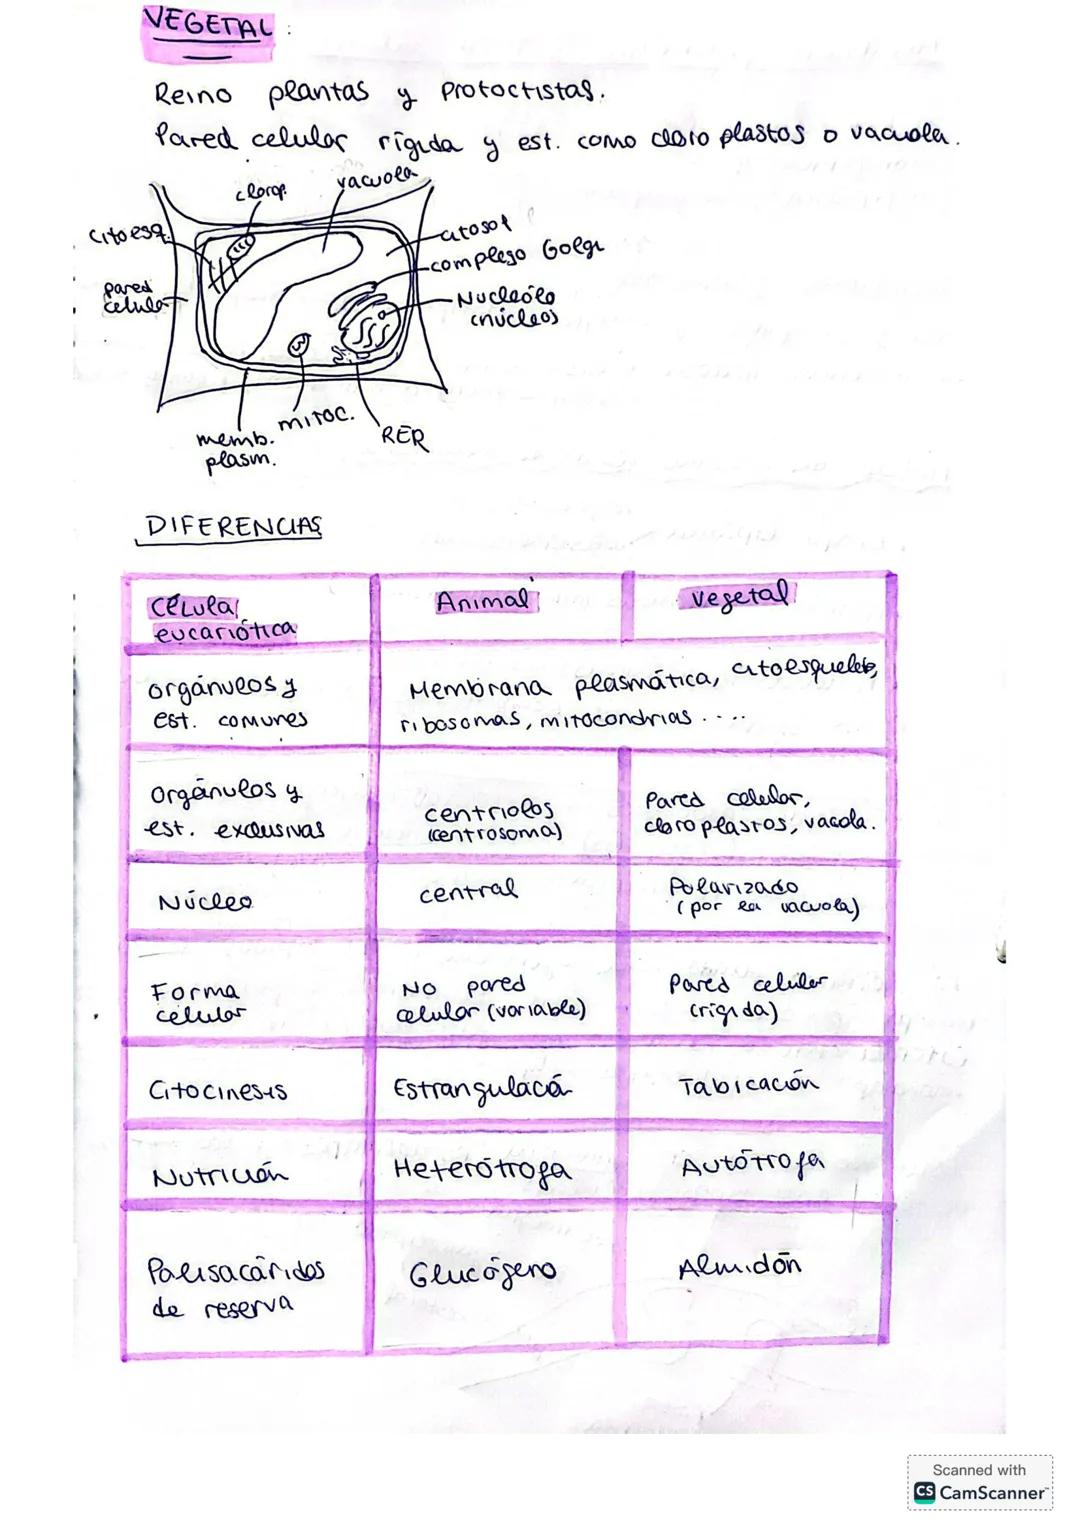 VEGETAL:
Reino plantas y Protoctistas.
Pared celular rígida y est. como cloroplastos o vacuola.
clorop.
vacuola
citoesq.
citosol
complejo Golgi
pared
celular
Nucleólo
(núcleos)
mitoc.
memb.
plasm.
RER
DIFERENCIAS
Célula
eucariótica
Animal
Vegetal
orgánulos y
est. comunes
Membrana plasmática, citoesqueleto,
ribosomas, mitocondrias....
orgánulos y
est. exclusivas
centriolos
(centrosoma)
Pared celular,
cloroplastos, vacola.
Núcleo
central
Polarizado
(por la vacuola)
Forma
celular
No pared
celular (variable)
Pared celular
(rígida)
Citocinesis
Estrangulación
Tabicación
Nutrición
Heterótrofa
Autótrofa
Polisacáridos
de reserva
Glucógeno
Almidón
Scanned with
CS CamScanner